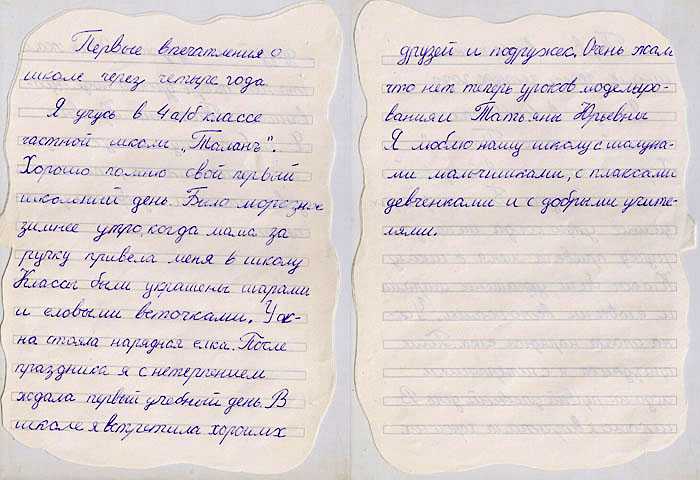 Первые впечатления о
школе через четыре года
Я учусь в 4 а/б классе
частной школы „Талант".
Хорошо помню свой первый
школьный день. Было морозное
зимнее утро, когда мама за
ручку привела меня в школу
Классы были украшены шарами
и еловыми веточками. У ок-
на стояла нарядная елка. После
праздника я с нетерпением
ждала первый учебный день. В
школе я встретила хороших
друзей и подружек. Очень жаль
что нет теперь уроков моделиро-
вания и Татьяны Юрьевны
Я люблю нашу школу с шалуна-
ми мальчишками, с плаксами
девченками и с добрыми учите-
лями.